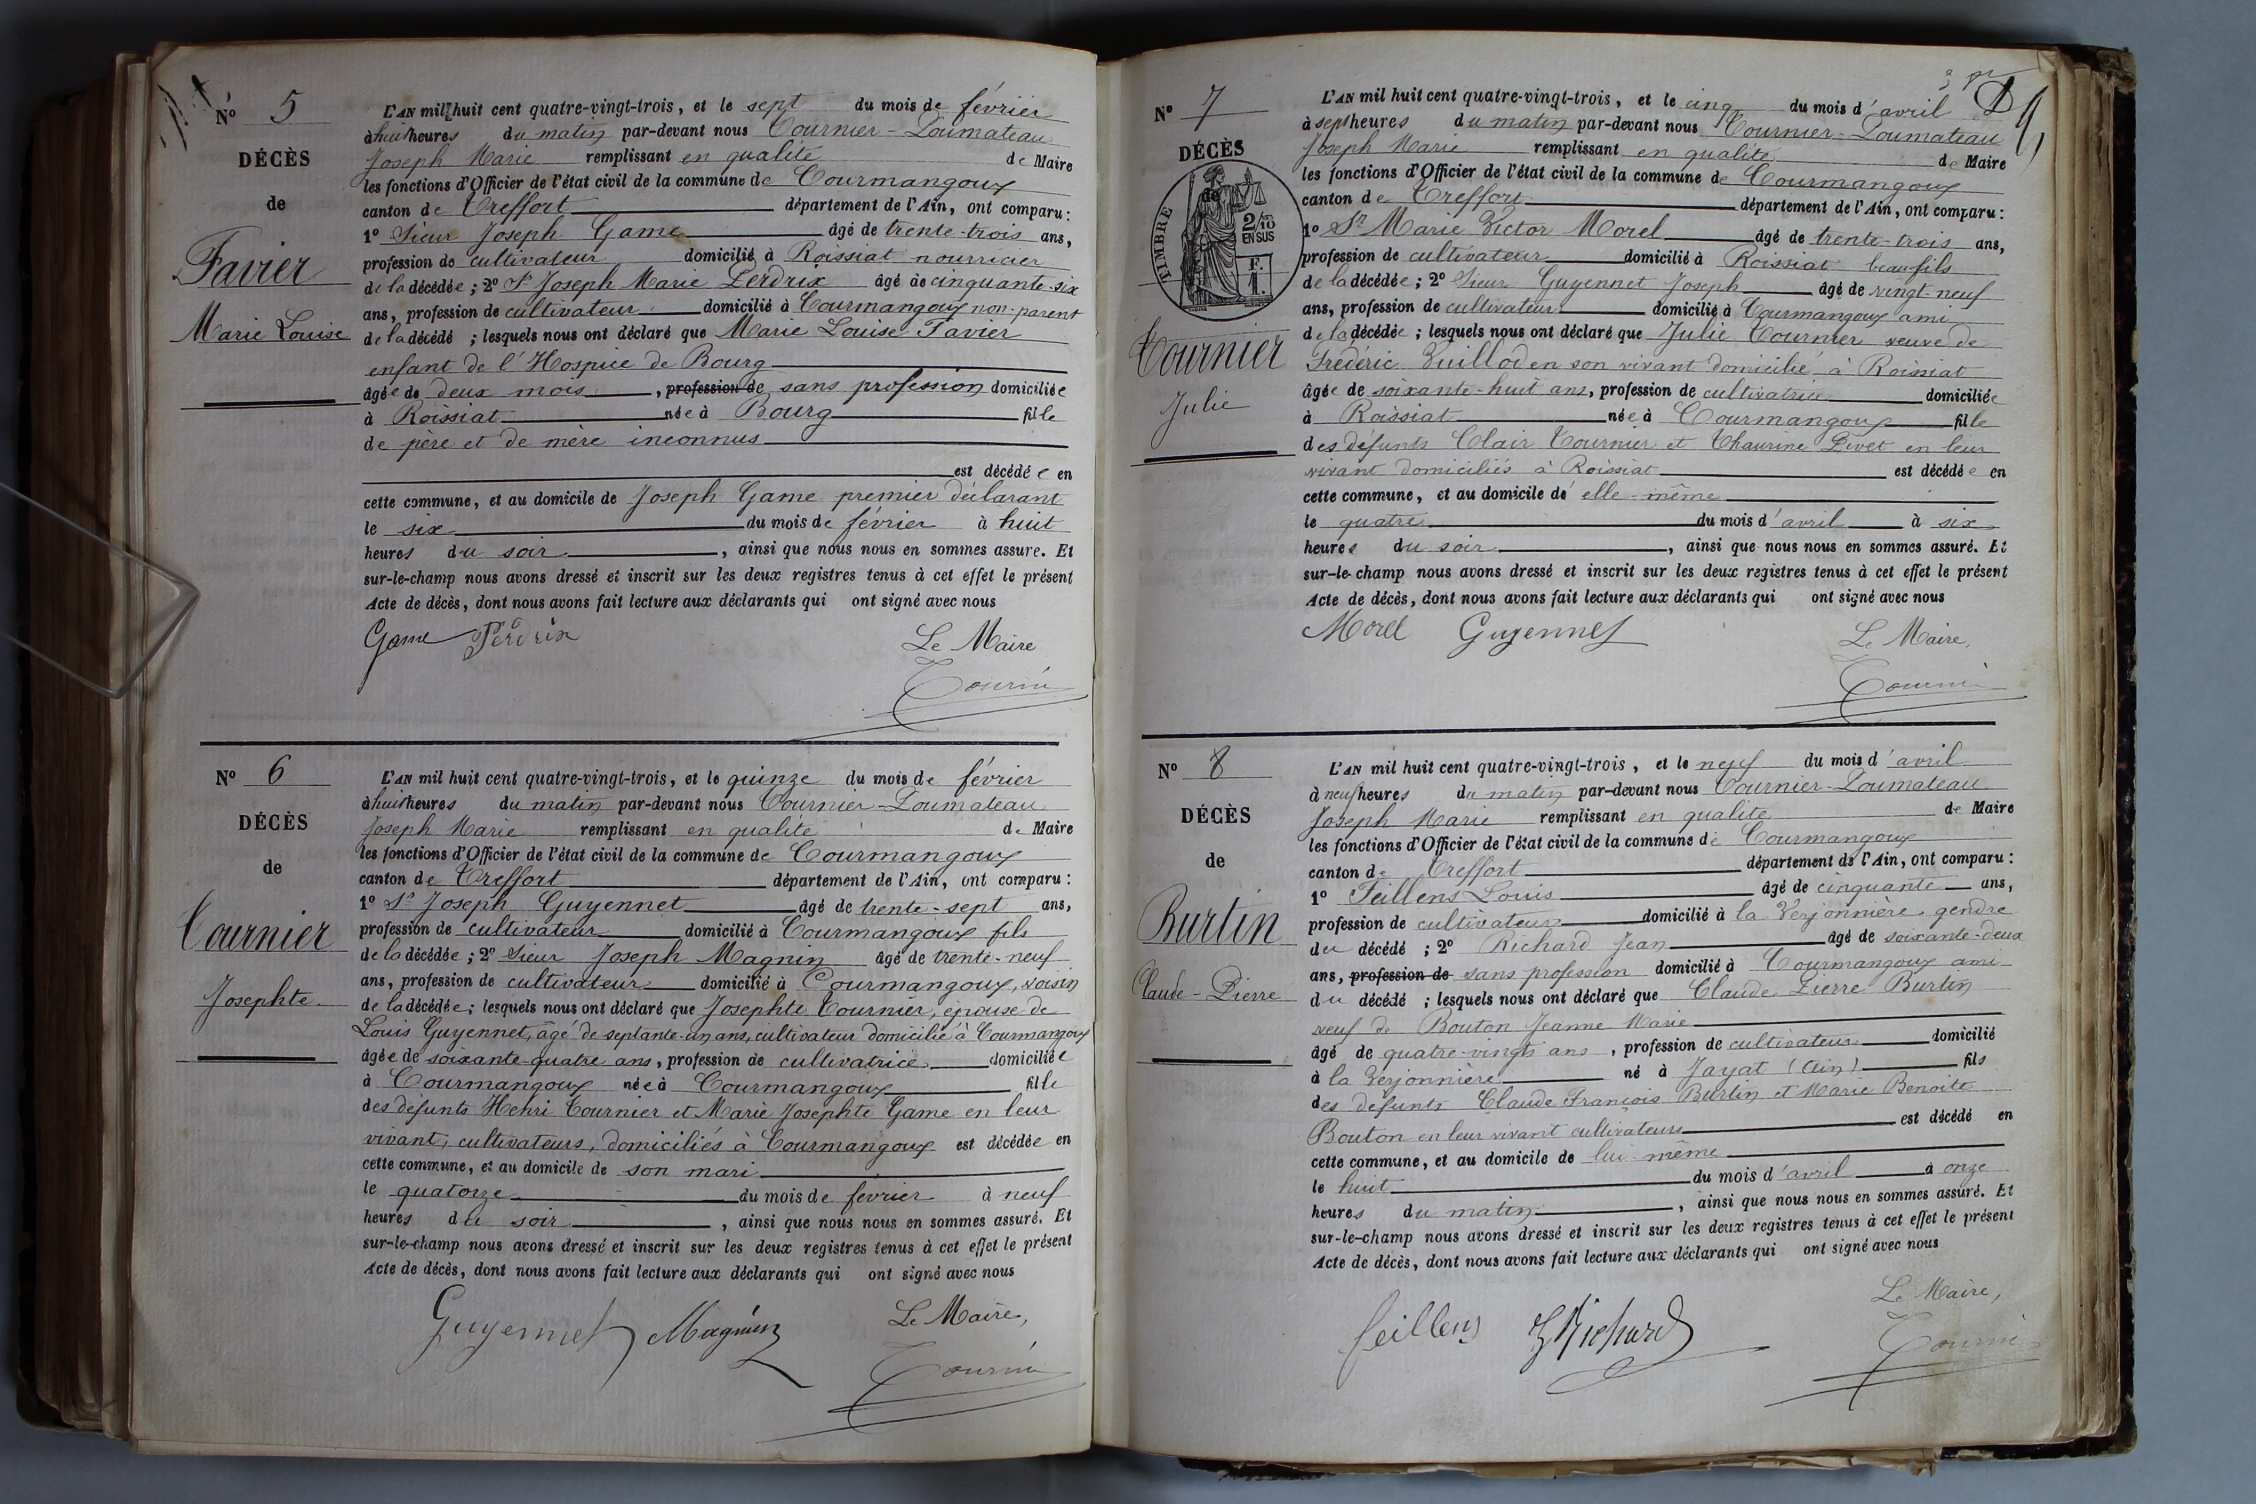 N° 5
DÉCÈS
de
Favier
Marie Louise
L'AN mil huit cent quatre-vingt-trois, et le sept du mois de février
à huit heures du matin par-devant nous Tournier-Poumateau
Joseph Marie remplissant en qualité de Maire
les fonctions d'Officier de l'état civil de la commune de Courmangoux
canton de Treffort département de l'Ain, ont comparu :
1° Sieur Joseph Game âgé de trente-trois ans,
profession de cultivateur domicilié à Roissiat nourricier
de la décédée ; 2° Sr Joseph Marie Perdrix âgé de cinquante-six
ans, profession de cultivateur domicilié à Courmangoux non-parent
de la décédé ; lesquels nous ont déclaré que Marie Louise Favier
enfant de l'Hospice de Bourg
âgée de deux mois, profession de sans profession domiciliée
à Roissiat née à Bourg fille
de père et de mère inconnus
est décédée en
cette commune, et au domicile de Joseph Game premier déclarant
le six du mois de février à huit
heures du soir, ainsi que nous nous en sommes assuré. Et
sur-le-champ nous avons dressé et inscrit sur les deux registres tenus à cet effet le présent
Acte de décès, dont nous avons fait lecture aux déclarants qui ont signé avec nous
Game Perdrix Le Maire
Tournier
N° 6
DÉCÈS
de
Tournier
Josephte
L'AN mil huit cent quatre-vingt-trois, et le quinze du mois de février
à huit heures du matin par-devant nous Tournier-Poumateau
Joseph Marie remplissant en qualité de Maire
les fonctions d'Officier de l'état civil de la commune de Courmangoux
canton de Treffort département de l'Ain, ont comparu :
1° Sr Joseph Guyennet âgé de trente-sept ans,
profession de cultivateur domicilié à Courmangoux fils
de la décédée ; 2° Sieur Joseph Magnin âgé de trente-neuf
ans, profession de cultivateur domicilié à Courmangoux, voisin
de la décédée ; lesquels nous ont déclaré que Josephte Tournier, épouse de
Louis Guyennet, âgé de septante-un ans, cultivateur domicilié à Courmangoux
âgée de soixante-quatre ans, profession de cultivatrice domiciliée
à Courmangoux née à Courmangoux fille
des défunts Henri Tournier et Marie Josephte Game en leur
vivant, cultivateurs, domiciliés à Courmangoux est décédée en
cette commune, et au domicile de son mari
le quatorze du mois de février à neuf
heures du soir, ainsi que nous nous en sommes assuré. Et
sur-le-champ nous avons dressé et inscrit sur les deux registres tenus à cet effet le présent
Acte de décès, dont nous avons fait lecture aux déclarants qui ont signé avec nous
Guyennet Magnin Le Maire,
Tournier
N° 7
DÉCÈS
de
TIMBRE
2/10
EN SUS
F.
1.
Tournier
Julie
L'AN mil huit cent quatre-vingt-trois, et le cinq du mois d'avril
à sept heures du matin par-devant nous Tournier-Poumateau
Joseph Marie remplissant en qualité de Maire
les fonctions d'Officier de l'état civil de la commune de Courmangoux
canton de Treffort département de l'Ain, ont comparu :
1° Sr Marie Victor Morel âgé de trente-trois ans,
profession de cultivateur domicilié à Roissiat beau fils
de la décédée ; 2° Sieur Guyennet Joseph âgé de vingt-neuf
ans, profession de cultivateur domicilié à Courmangoux ami
de la décédée ; lesquels nous ont déclaré que Julie Tournier veuve de
Frédéric Vuillod en son vivant domicilié à Roissiat
âgée de soixante-huit ans, profession de cultivatrice domiciliée
à Roissiat née à Courmangoux fille
des défunts Clair Tournier et Thaurine Pivet en leur
vivant domiciliés à Roissiat est décédée en
cette commune, et au domicile d'elle-même
le quatre du mois d'avril à six
heures du soir, ainsi que nous nous en sommes assuré. Et
sur-le-champ nous avons dressé et inscrit sur les deux registres tenus à cet effet le présent
Acte de décès, dont nous avons fait lecture aux déclarants qui ont signé avec nous
Morel Guyennet Le Maire,
Tournier
N° 8
DÉCÈS
de
Burtin
Claude-Pierre
L'AN mil huit cent quatre-vingt-trois, et le neuf du mois d'avril
à neuf heures du matin par-devant nous Tournier-Poumateau
Joseph Marie remplissant en qualité de Maire
les fonctions d'Officier de l'état civil de la commune de Courmangoux
canton de Treffort département de l'Ain, ont comparu :
1° Feillens Louis âgé de cinquante ans,
profession de cultivateur domicilié à la Verjonnière, gendre
du décédé ; 2° Richard Jean âgé de soixante-deux
ans, profession de sans profession domicilié à Courmangoux ami
du décédé ; lesquels nous ont déclaré que Claude Pierre Burtin
veuf de Bouton Jeanne Marie
âgé de quatre-vingts ans, profession de cultivateur domicilié
à la Verjonnière né à Jayat (Ain) fils
des défunts Claude François Burtin et Marie Benoite
Bouton en leur vivant cultivateurs est décédé en
cette commune, et au domicile de lui-même
le huit du mois d'avril à onze
heures du matin, ainsi que nous nous en sommes assuré. Et
sur-le-champ nous avons dressé et inscrit sur les deux registres tenus à cet effet le présent
Acte de décès, dont nous avons fait lecture aux déclarants qui ont signé avec nous
Le Maire,
feillens JRichard Tournier